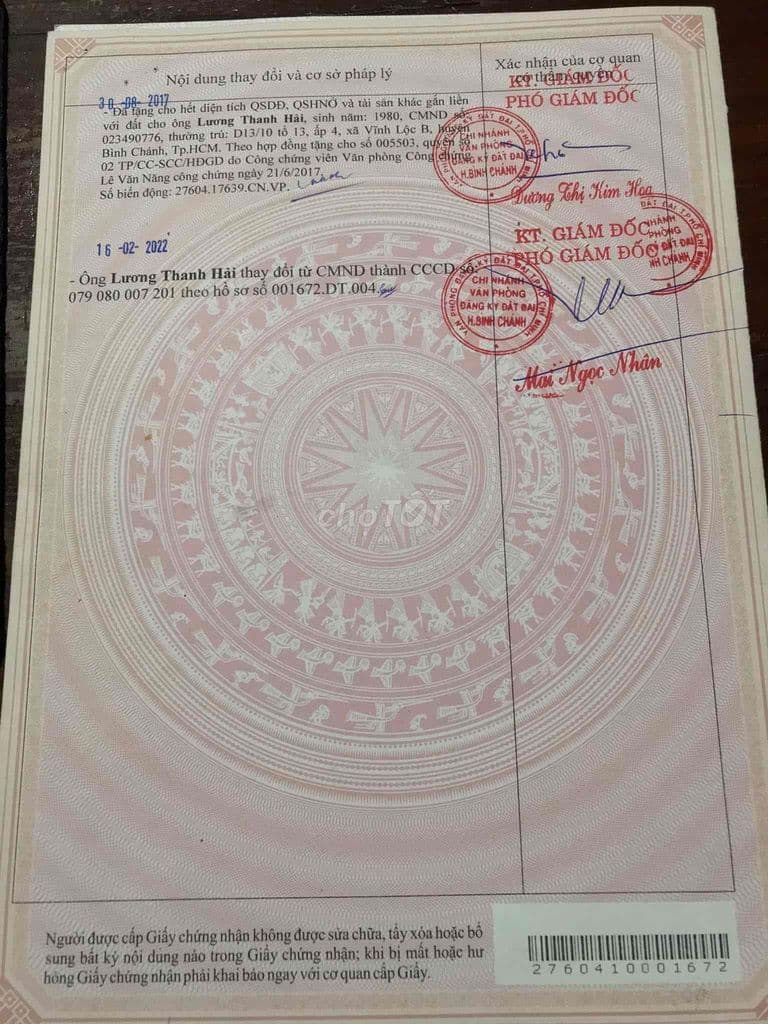 Nội dung thay đổi và cơ sở pháp lý
Xác nhận của cơ quan
có thẩm quyền
30 -08- 2017
KT. GIÁM ĐỐC
PHÓ GIÁM ĐỐC
- Đã tặng cho hết diện tích QSDĐ, QSHNỞ và tài sản khác gắn liền
với đất cho ông Lương Thanh Hải, sinh năm: 1980, CMND số:
023490776, thường trú: D13/10 tổ 13, ấp 4, xã Vĩnh Lộc B, huyện
Bình Chánh, Tp.HCM. Theo hợp đồng tặng cho số 005503, quyển số
02 TP/CC-SCC/HĐGD do Công chứng viên Văn phòng Công chứng
Lê Văn Năng công chứng ngày 21/6/2017.
Số biến động: 27604.17639.CN.VP.
CHI NHÁNH
VĂN PHÒNG
ĐĂNG KÝ ĐẤT ĐAI
H.BÌNH CHÁNH
Dương Thị Kim Hoa
16 -02- 2022
KT. GIÁM ĐỐC
PHÓ GIÁM ĐỐC
- Ông Lương Thanh Hải thay đổi từ CMND thành CCCD số:
079 080 007 201 theo hồ sơ số 001672.DT.004.
VĂN PHÒNG ĐĂNG KÝ ĐẤT ĐAI T.P HỒ CHÍ MINH
CHI NHÁNH
VĂN PHÒNG
ĐĂNG KÝ ĐẤT ĐAI
H.BÌNH CHÁNH
Mai Ngọc Nhân
choTỐT
Người được cấp Giấy chứng nhận không được sửa chữa, tẩy xóa hoặc bổ
sung bất kỳ nội dung nào trong Giấy chứng nhận; khi bị mất hoặc hư
hỏng Giấy chứng nhận phải khai báo ngay với cơ quan cấp Giấy.
2760410001672